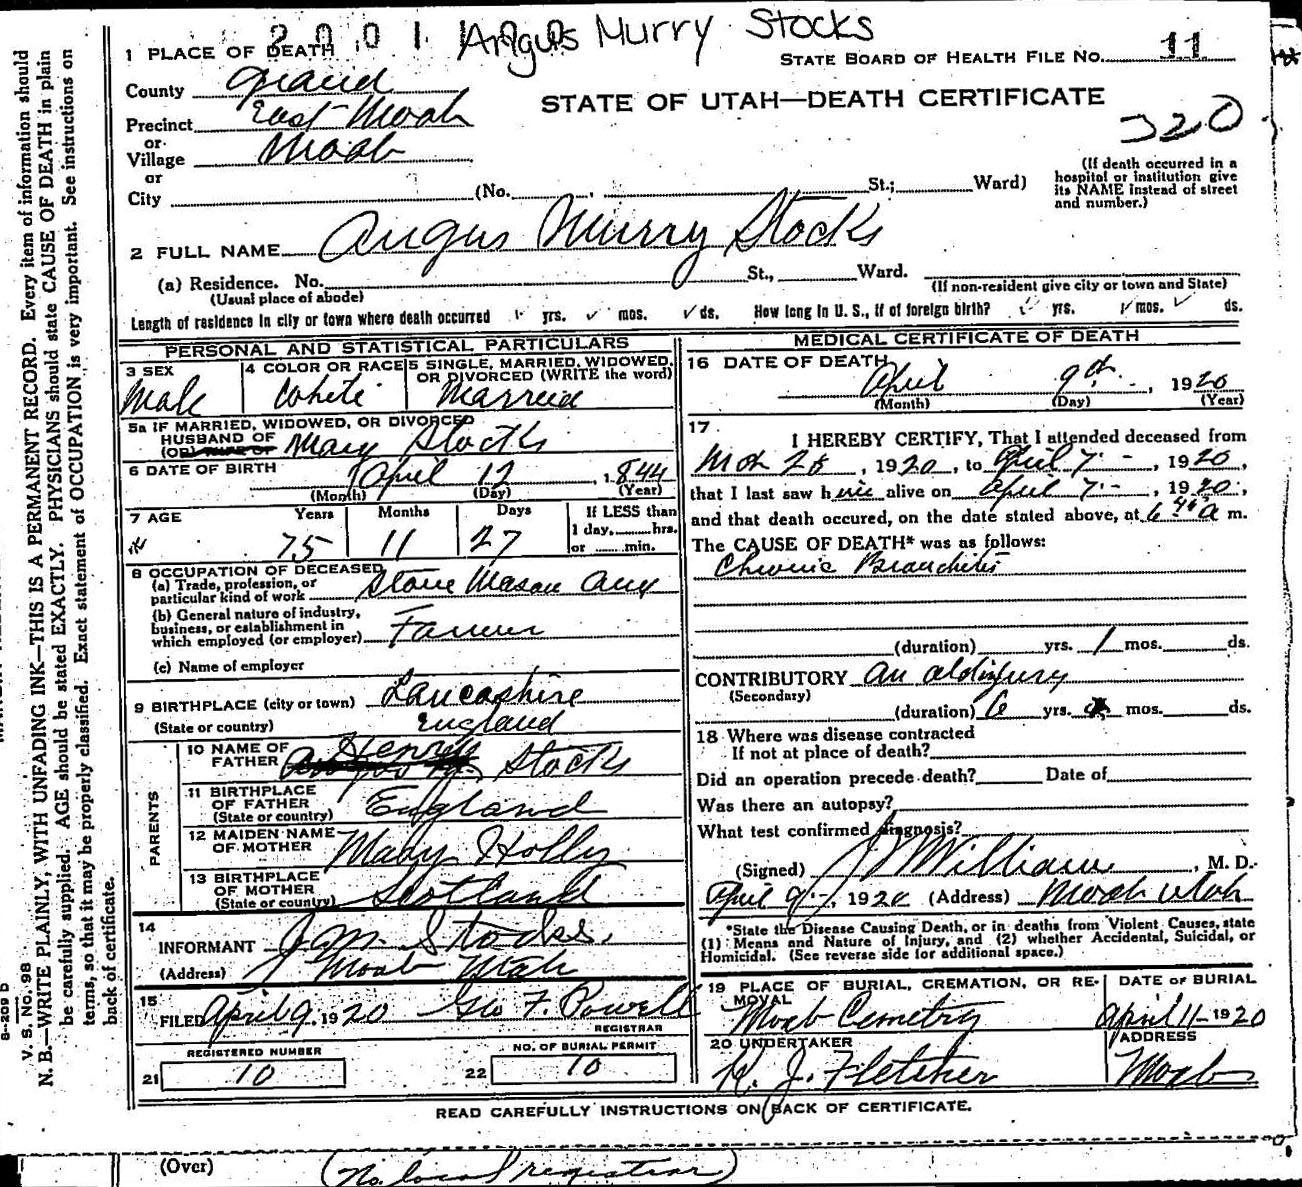 2001 Angus Murry Stocks
1 PLACE OF DEATH
STATE BOARD OF HEALTH FILE NO. 11
County Grand
STATE OF UTAH—DEATH CERTIFICATE
320
Precinct East Moab
or
Village Moab
or
City (No. , St.; Ward)
(If death occurred in a
hospital or institution give
its NAME instead of street
and number.)
2 FULL NAME Angus Murry Stocks
(a) Residence. No. St., Ward.
(Usual place of abode)
(If non-resident give city or town and State)
Length of residence in city or town where death occurred yrs. mos. ds. How long in U. S., if of foreign birth? yrs. mos. ds.
PERSONAL AND STATISTICAL PARTICULARS
3 SEX
Male
4 COLOR OR RACE
White
5 SINGLE, MARRIED, WIDOWED,
OR DIVORCED (WRITE the word)
Married
5a IF MARRIED, WIDOWED, OR DIVORCED
HUSBAND OF Mary Stocks
(OR) WIFE OF
6 DATE OF BIRTH April 12, 1844
(Month) (Day) (Year)
7 AGE
Years Months Days
75 11 27
If LESS than
1 day, hrs.
or min.
8 OCCUPATION OF DECEASED
(a) Trade, profession, or
particular kind of work Stone Mason any
(b) General nature of industry,
business, or establishment in
which employed (or employer) Farmer
(c) Name of employer
9 BIRTHPLACE (city or town) Lancashire
(State or country) England
PARENTS
10 NAME OF
FATHER Henry Stocks
11 BIRTHPLACE
OF FATHER
(State or country) England
12 MAIDEN NAME
OF MOTHER Mary Holly
13 BIRTHPLACE
OF MOTHER
(State or country) Scotland
14
INFORMANT J. M. Stocks.
(Address) Moab Utah
15
FILED April 9, 1920 Geo F. Powell
REGISTRAR
REGISTERED NUMBER
21 10
NO. OF BURIAL PERMIT
22 10
MEDICAL CERTIFICATE OF DEATH
16 DATE OF DEATH
April 9th, 1920
(Month) (Day) (Year)
17
I HEREBY CERTIFY, That I attended deceased from
Mch 28, 1920, to April 7, 1920,
that I last saw him alive on April 7, 1920,
and that death occured, on the date stated above, at 6 40 a m.
The CAUSE OF DEATH* was as follows:
Chronic Bronchitis
(duration) yrs. 1 mos. ds.
CONTRIBUTORY an old injury
(Secondary)
(duration) 6 yrs. mos. ds.
18 Where was disease contracted
If not at place of death?
Did an operation precede death? Date of
Was there an autopsy?
What test confirmed diagnosis?
(Signed) J Williams, M. D.
April 9, 1920 (Address) Moab Utah
*State the Disease Causing Death, or in deaths from Violent Causes, state
(1) Means and Nature of Injury, and (2) whether Accidental, Suicidal, or
Homicidal. (See reverse side for additional space.)
19 PLACE OF BURIAL, CREMATION, OR RE-
MOVAL
Moab Cemetry
DATE OF BURIAL
April 11-1920
20 UNDERTAKER
R. J. Fletcher
ADDRESS
Moab
READ CAREFULLY INSTRUCTIONS ON BACK OF CERTIFICATE.
(Over)
(No local registrar)
8-209 D
V. S. No. 98
N. B.—WRITE PLAINLY, WITH UNFADING INK—THIS IS A PERMANENT RECORD. Every item of information should
be carefully supplied. AGE should be stated EXACTLY. PHYSICIANS should state CAUSE OF DEATH in plain
terms, so that it may be properly classified. Exact statement of OCCUPATION is very important. See instructions on
back of certificate.